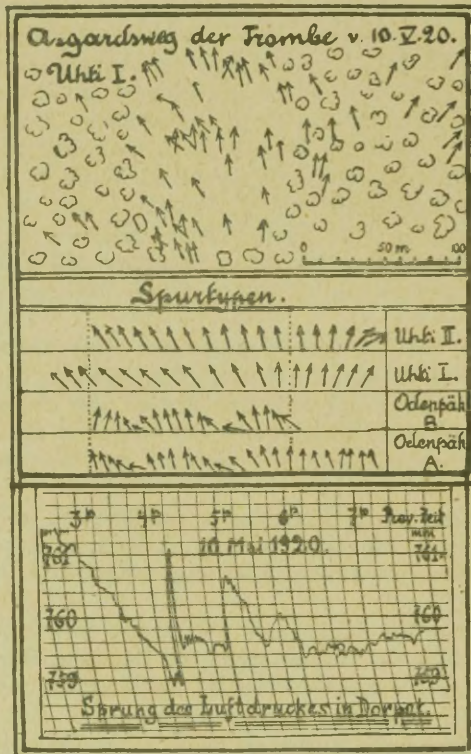 Asgardsweg der Trombe v. 10.V.20.
Uhti I.
0 50 m 100
Spurtypen.
Uhti II.
Uhti I.
Odenpäh B.
Odenpäh A.
3p 4p 5p 6p 7p Prov. Zeit
mm
10 Mai 1920.
761 761
760 760
759 759
Sprung des Luftdruckes in Dorpat.